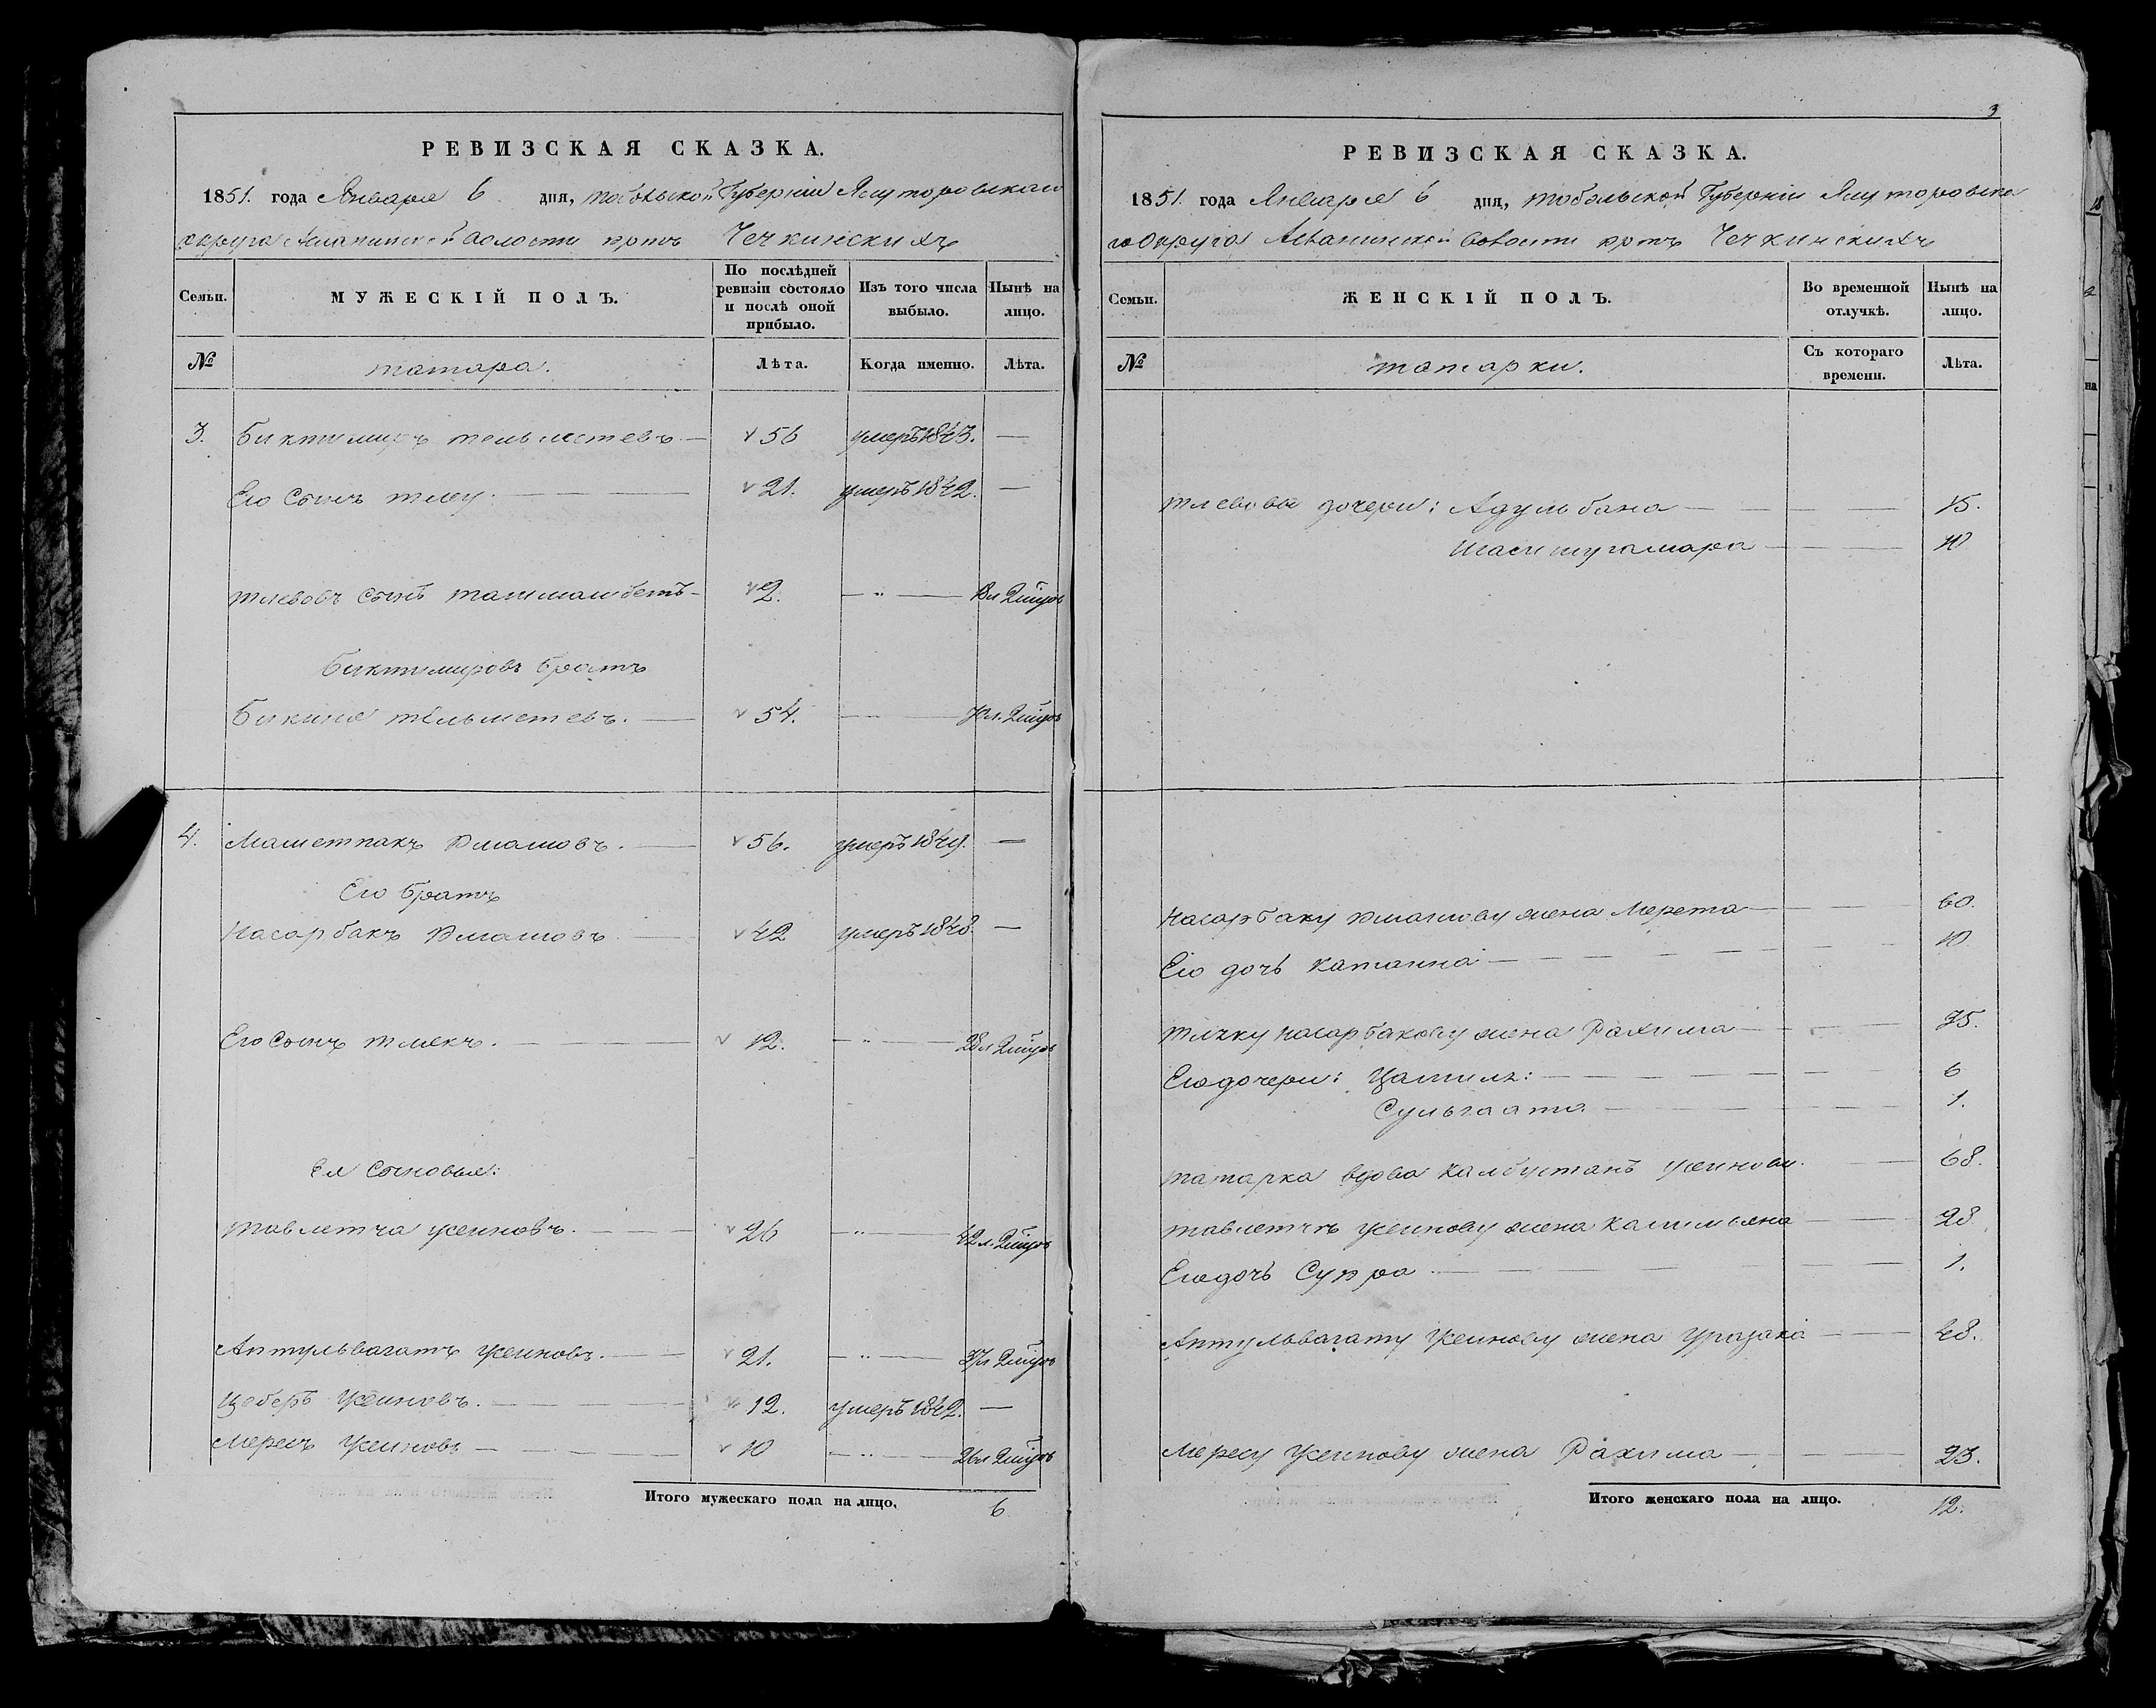 РЕВИЗСКАЯ СКАЗКА.
1851. года Января 6 дня, Тобольской Губерніи Ялуторовскаго
округа Асланинской волости юртъ Чечкинскихъ
Семьи.
МУЖЕСКІЙ ПОЛЪ.
По послѣдней ревизіи состояло и послѣ оной прибыло.
Изъ того числа выбыло.
Нынѣ на лицо.
№
татара.
Лѣта.
Когда именно.
Лѣта.
3. Биктимиръ Тельметевъ — 56 умеръ 1843. —
Его Сынъ Тлеу. — 21. умеръ 1842. —
Тлевовъ Сынъ Ташмамбетъ — 2. — " —
Биктимировъ Братъ
Бикиня Тельметевъ. — 54. — " —
4. Маметпакъ — 56. умеръ 1849. —
Его Братъ
Насарбакъ — 42 умеръ 1848. —
Его Сынъ Тлякъ. — 12. — " — 28 л
Ея Сыновья:
Тавлетча Усеиновъ. — 26 — " — 42 л.
Аптульвагатъ Усеиновъ. — 21. — " — 37 л
Усеиновъ. — 12. умеръ 1842. —
Мересъ Усеиновъ — 10 — " — 26 л
Итого мужескаго пола на лицо. 6
3
РЕВИЗСКАЯ СКАЗКА.
1851 года Января 6 дня, Тобольской Губерніи Ялуторовска
го Округа Асланинской волости юртъ Чечкинскихъ
Семьи.
ЖЕНСКІЙ ПОЛЪ.
Во временной отлучкѣ.
Нынѣ на лицо.
№
татарки.
Съ котораго времени.
Лѣта.
Тлевовы дочери: Адульбана — 15.
10
Насарбаку жена Мерета — 60.
Его дочь Катанна — 10
Насарбакову жена Рахима — 35.
Его дочери: — 6
— 1.
Татарка вдова Калбустанъ Усеинова. — 68.
Усеинову жена — 28
Его дочь — 1.
Аптульвагату Усеинову жена Уразака — 28.
Мересу Усеинову жена Рахима — 23.
Итого женскаго пола на лицо. 12.